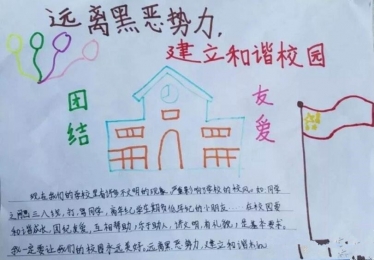 远离黑恶势力,
建立和谐校园
团结
友爱
现在我们的学校里有许多不文明的现象,严重影响了学校的校风。如:同学
之间三人1伙,打、骂同学,高年纪学生欺负低年纪的小朋友……在校园要
和谐成长,团纪友爱,互相帮助,乐于助人,讲文明,有礼貌,是基本要求。
我一定要让我们的校园永远美好。远离黑恶势力,建立和谐